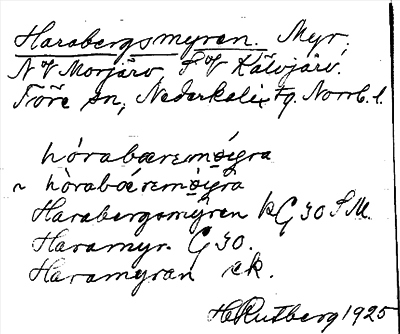 Harabergsmyren. Myr,
N of Morjärv, S of Kälvjärv.
Töre sn, Nederkalix tg. Norrb. l.
hórabæremǿi̯gra
~ hòrabǽremǿi̯grà
Harabergsmyren kG 30 S.M.
Haramyr. G 30.
Haramyran ek.
H Rutberg 1925